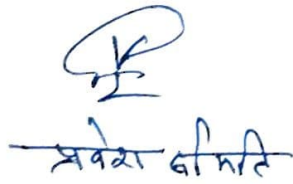 प्रवेश समिति